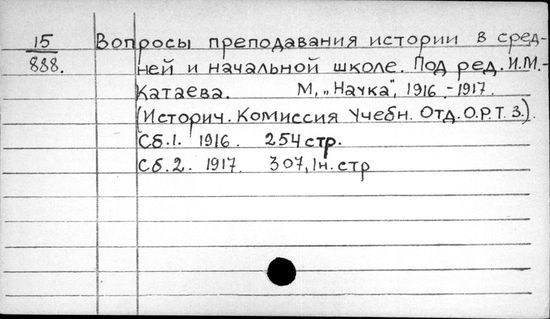 15
888.
Вопросы преподавания истории в сред-
ней и начальной школе. Под ред. И.М.-
Катаева. М, „Наука", 1916.-1917.
(Историч. Комиссия Учебн. Отд. О.Р.Т.З.).
Сб.1. 1916. 254 стр.
Сб.2. 1917. 307, 1н. стр